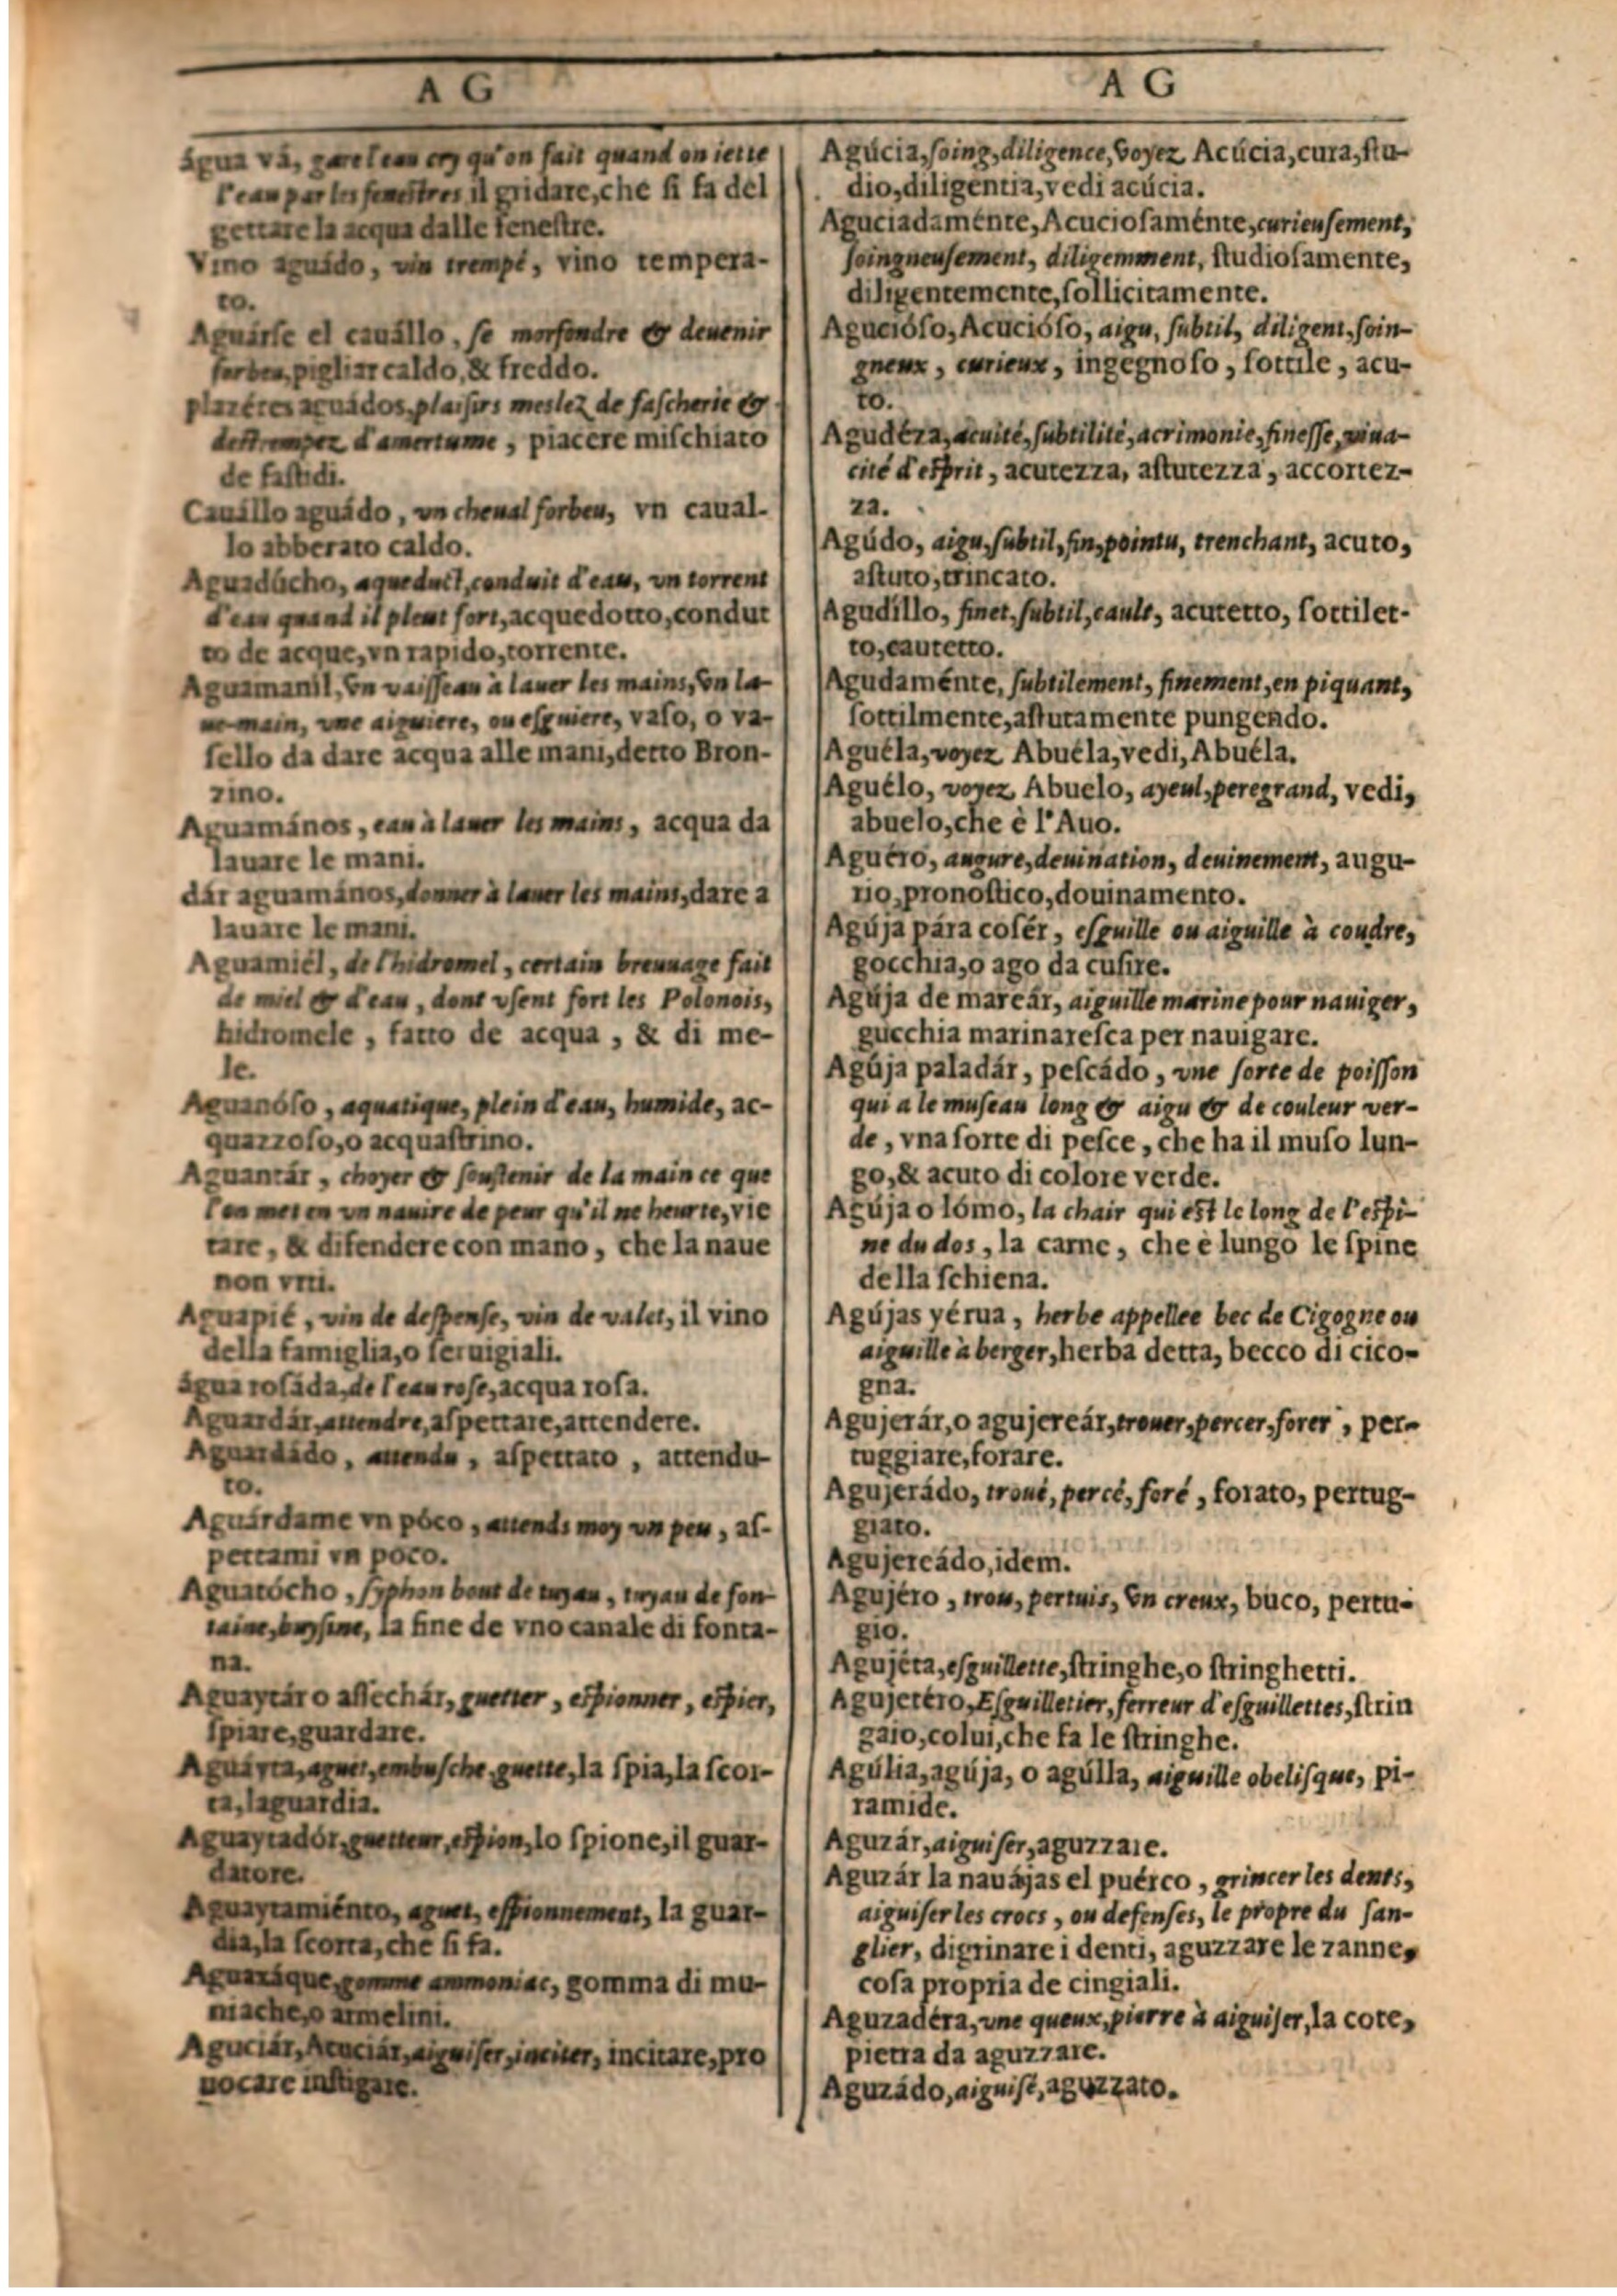 A G
água vá, gare l'eau cry qu'on fait quand on iette
l'eau par les fenestres il gridare, che ſi fa del
gettare la acqua dalle feneſtre.
Vino aguádo, vin trempé, vino tempera-
to.
Aguárſe el cauállo, ſe morfondre & deuenir
forbeu, pigliar caldo, & freddo.
plazéres aguádos, plaiſirs meslez de faſcherie &
destrempez d'amertume, piacere miſchiato
de faſtidi.
Cauállo aguádo, vn cheual forbeu, vn caual-
lo abberato caldo.
Aguadúcho, aqueduct, conduit d'eau, vn torrent
d'eau quand il pleut fort, acquedotto, condut
to de acque, vn rapido, torrente.
Aguamanìl, vn vaiſſeau à lauer les mains, vn la-
ue-main, vne aiguiere, ou eſguiere, vaſo, o va-
ſello da dare acqua alle mani, detto Bron-
zino.
Aguamános, eau à lauer les mains, acqua da
lauare le mani.
dár aguamános, donner à lauer les mains, dare a
lauare le mani.
Aguamiél, de l'hidromel, certain breuuage fait
de miel & d'eau, dont vſent fort les Polonois,
hidromele, fatto de acqua, & di me-
le.
Aguanóſo, aquatique, plein d'eau, humide, ac-
quazzoſo, o acquaſtrino.
Aguantár, choyer & ſouſtenir de la main ce que
l'on met en vn nauire de peur qu'il ne heurte, vie
tare, & difendere con mano, che la naue
non vrti.
Aguapié, vin de deſpenſe, vin de valet, il vino
della famiglia, o ſeruigiali.
água roſáda, de l'eau roſe, acqua roſa.
Aguardár, attendre, aſpettare, attendere.
Aguardádo, attendu, aſpettato, attendu-
to.
Aguárdame vn póco, attends moy vn peu, aſ-
pettami vn poco.
Aguatócho, ſyphon bout de tuyau, tuyau de fon-
taine, buyſine, la fine de vno canale di fonta-
na.
Aguaytár o aſſechár, guetter, eſpionner, eſpier,
ſpiare, guardare.
Aguáyta, aguet, embuſche, guette, la ſpia, la ſcor-
ta, la guardia.
Aguaytadór, guetteur, eſpion, lo ſpione, il guar-
datore.
Aguaytamiénto, aguet, eſpionnement, la guar-
dia, la ſcorta, che ſi fa.
Aguaxáque, gomme ammoniac, gomma di mu-
niache, o armelini.
Aguciár, Acuciár, aiguiſer, inciter, incitare, pro
uocare inſtigare.
A G
Agúcia, ſoing, diligence, voyez Acúcia, cura, ſtu-
dio, diligentia, vedi acúcia.
Aguciadaménte, Acucioſaménte, curieuſement,
ſoingneuſement, diligemment, ſtudioſamente,
diligentemente, ſollicitamente.
Agucióſo, Acucióſo, aigu, ſubtil, diligent, ſoin-
gneux, curieux, ingegnoſo, ſottile, acu-
to.
Agudéza, acuité, ſubtilité, acrimonie, fineſſe, viua-
cité d'eſprit, acutezza, aſtutezza, accortez-
za.
Agúdo, aigu, ſubtil, fin, pointu, trenchant, acuto,
aſtuto, trincato.
Agudíllo, finet, ſubtil, cault, acutetto, ſottilet-
to, cautetto.
Agudaménte, ſubtilement, finement, en piquant,
ſottilmente, aſtutamente pungendo.
Aguéla, voyez Abuéla, vedi, Abuéla.
Aguélo, voyez Abuelo, ayeul, peregrand, vedi,
abuelo, che è l'Auo.
Aguéro, augure, deuination, deuinement, augu-
rio, pronoſtico, douinamento.
Agúja pára coſér, eſguille ou aiguille à coudre,
gocchia, o ago da cuſire.
Agúja de mareár, aiguille marine pour nauiger,
gucchia marinareſca per nauigare.
Agúja paladár, peſcádo, vne ſorte de poiſſon
qui a le muſeau long & aigu & de couleur ver-
de, vna ſorte di peſce, che ha il muſo lun-
go, & acuto di colore verde.
Agúja o lómo, la chair qui est le long de l'eſpi-
ne du dos, la carne, che è lungo le ſpine
della ſchiena.
Agújas yérua, herbe appellee bec de Cigogne ou
aiguille à berger, herba detta, becco di cico-
gna.
Agujerár, o agujereár, trouer, percer, forer, per-
tuggiare, forare.
Agujerádo, troué, percé, foré, forato, pertug-
giato.
Agujereádo, idem.
Agujéro, trou, pertuis, vn creux, buco, pertu-
gio.
Agujéta, eſguillette, ſtringhe, o ſtringhetti.
Agujetéro, Eſguilletier, ferreur d'eſguillettes, ſtrin
gaio, colui, che fa le ſtringhe.
Agúlia, agúja, o agúlla, aiguille obeliſque, pi-
ramide.
Aguzár, aiguiſer, aguzzare.
Aguzár la nauájas el puérco, grincer les dents,
aiguiſer les crocs, ou defenſes, le propre du ſan-
glier, digrinare i denti, aguzzare le zanne,
coſa propria de cingiali.
Aguzadéra, vne queux, pierre à aiguiſer, la cote,
pietra da aguzzare.
Aguzádo, aiguiſé, aguzzato.